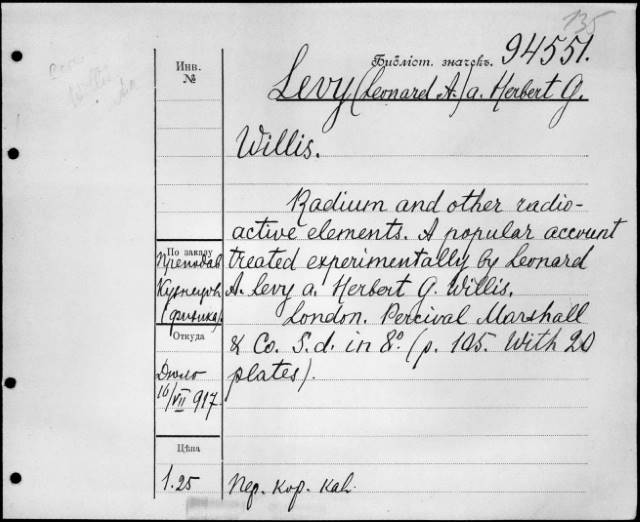 135
Библіот. значекъ. 94551.
Инв.
№
Levy (Leonard A.) a. Herbert G.
Willis.
Radium and other radio-
active elements. A popular account
treated experimentally by Leonard
A. Levy a. Herbert G. Willis.
London. Percival Marshall
& Co. S.d. in 8º (p. 105. With 20
plates).
По заказу
Преподав
Кузнецовъ
(физика).
Откуда
Дюло
16/VII 917.
Цѣна
1.25
Пер. кор. kal.
Willis